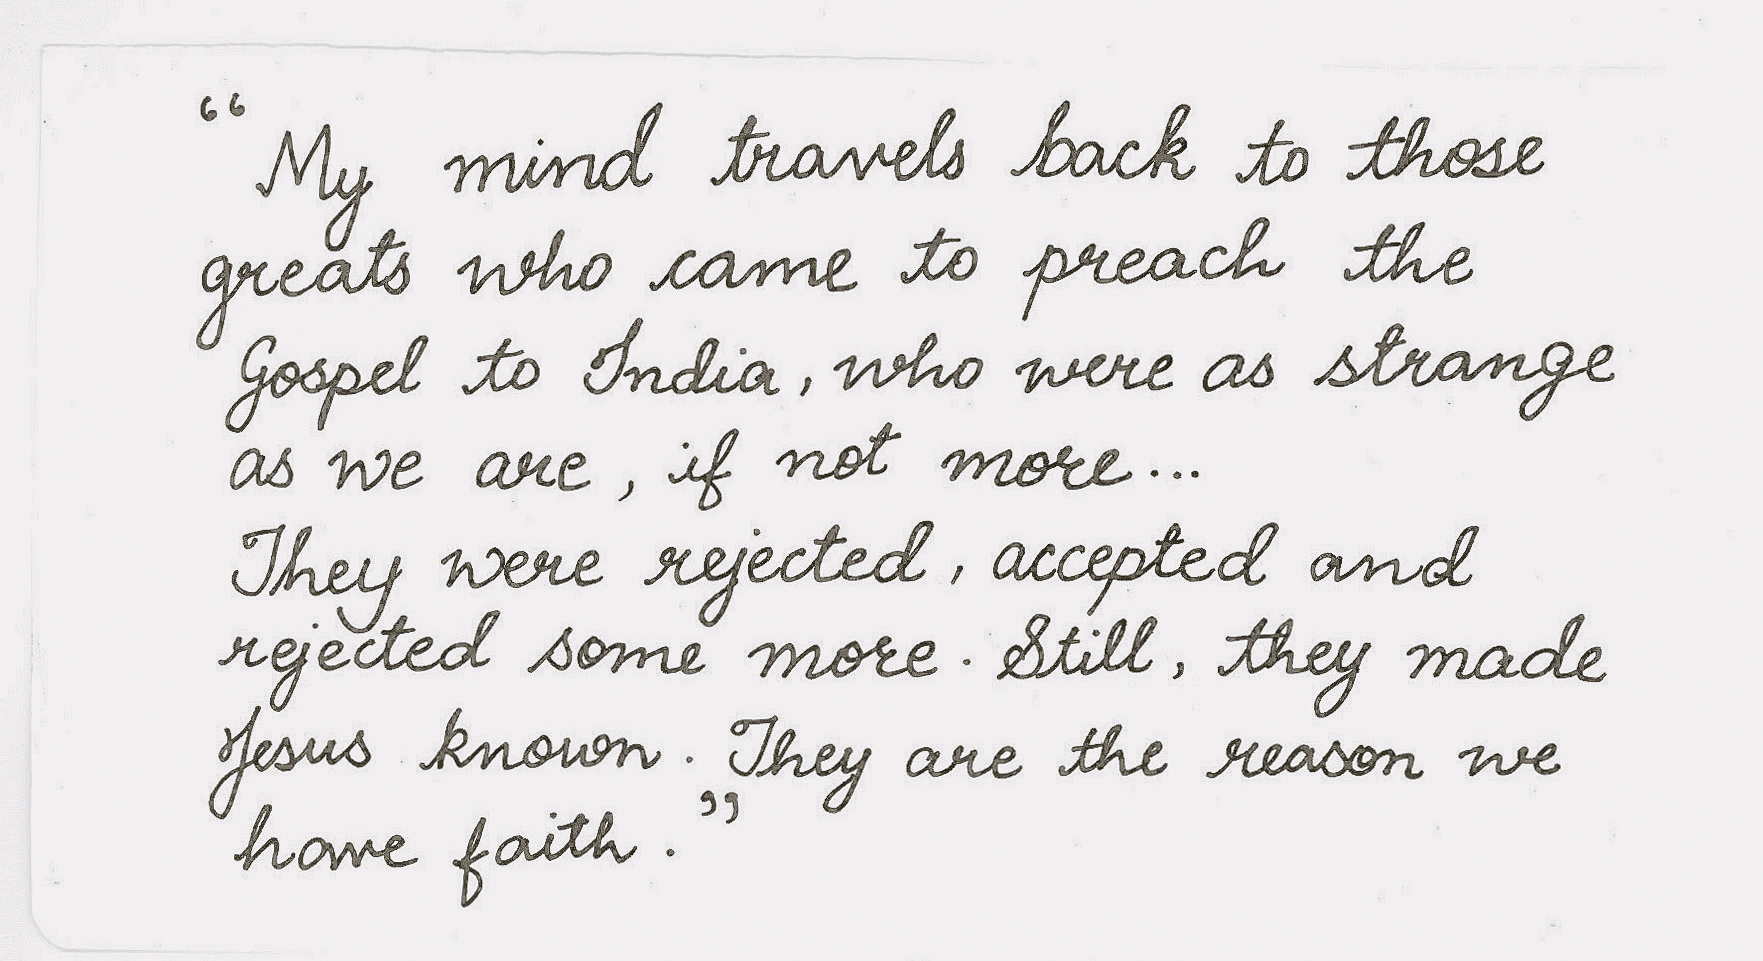 “My mind travels back to those
greats who came to preach the
Gospel to India, who were as strange
as we are, if not more...
They were rejected, accepted and
rejected some more. Still, they made
Jesus known. They are the reason we
have faith.”